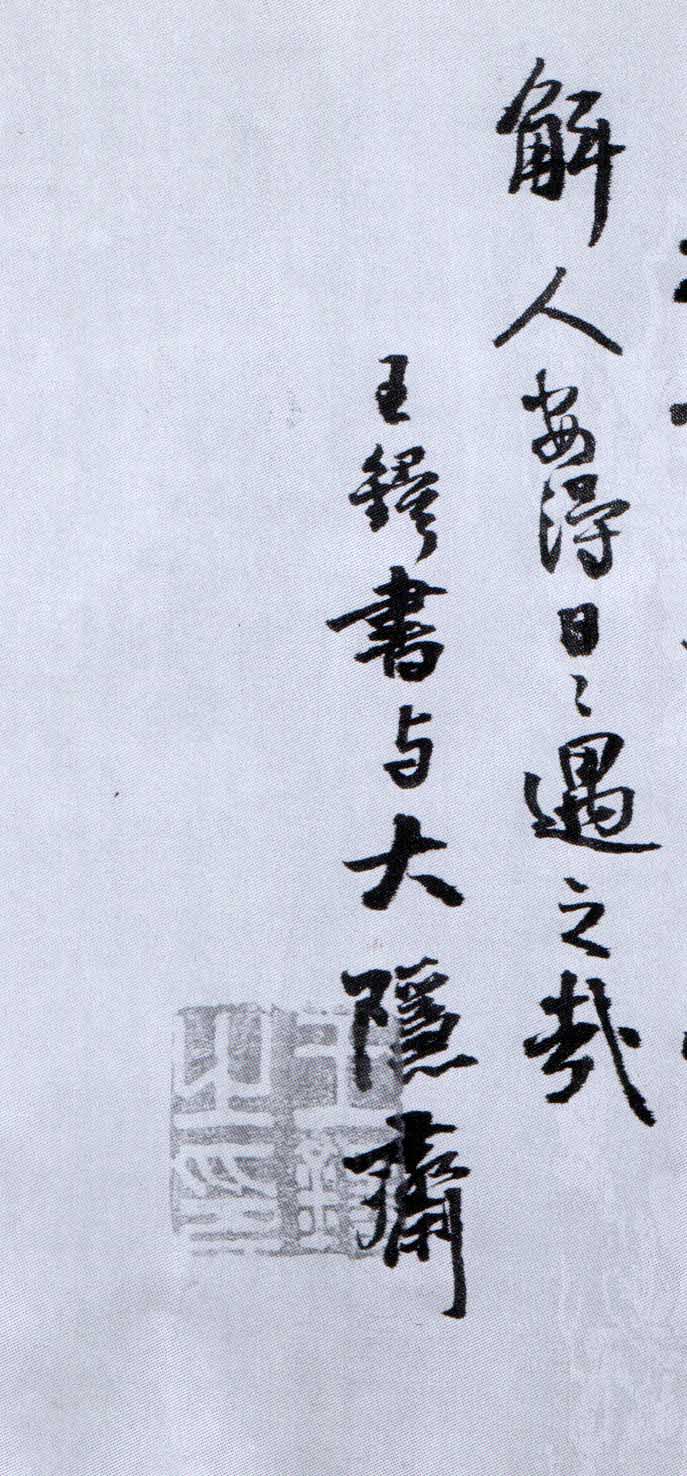 解人安得日〻遇之哉
王鐸書与大隱齋